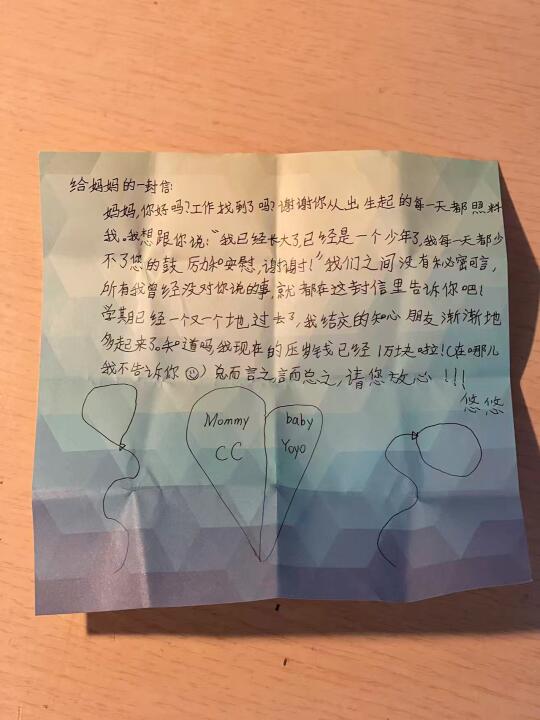 给妈妈的一封信:
妈妈,你好吗?工作找到了吗?谢谢你从出生起的每一天都照料
我。我想跟你说:“我已经长大了,已经是一个少年了,我每一天都少
不了您的鼓厉和安慰,谢谢!”我们之间没有秘密可言,
所有我曾经没对你说的事,就都在这封信里告诉你吧!
学期已经一个又一个地过去了,我结交的知心朋友渐渐地
多起来了。知道吗我现在的压岁钱已经1万块啦!(在哪儿
我不告诉你☺)总而言之,言而总之,请您放心!!!
悠悠
Mommy
CC
baby
Yoyo